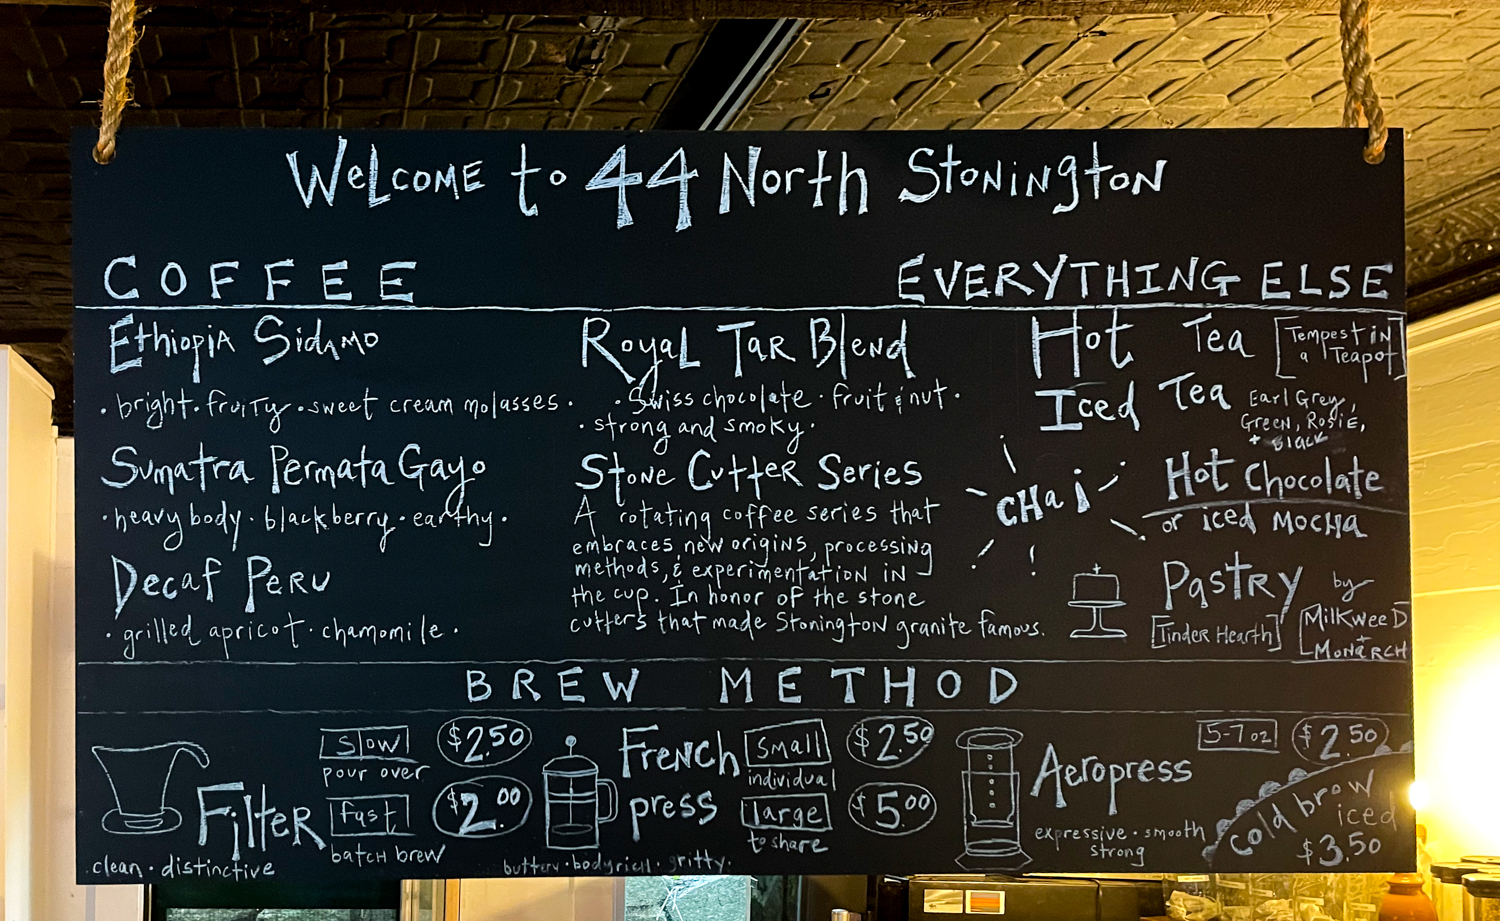 Welcome to 44 North Stonington
COFFEE
Ethiopia Sidamo
· bright · fruity · sweet cream molasses ·
Sumatra Permata Gayo
· heavy body · blackberry · earthy ·
Decaf Peru
· grilled apricot · chamomile ·
Royal Tar Blend
· Swiss chocolate · fruit & nut ·
· strong and smoky ·
Stone Cutter Series
A rotating coffee series that
embraces new origins, processing
methods, & experimentation in
the cup. In honor of the stone
cutters that made Stonington granite famous.
EVERYTHING ELSE
Hot Tea [Tempest in
a Teapot]
Iced Tea Earl Grey,
Green, Rosie,
+ Black
CHai
Hot Chocolate
or iced MOCHA
Pastry by
[Tinder Hearth] [Milkweed
+
Monarch]
BREW METHOD
Filter
clean · distinctive
slow $2.50
pour over
fast $2.00
batch brew
French
press
small $2.50
individual
large $5.00
to share
buttery · body rich · gritty ·
Aeropress
5-7 oz $2.50
expressive · smooth
strong
Cold brew
iced
$3.50